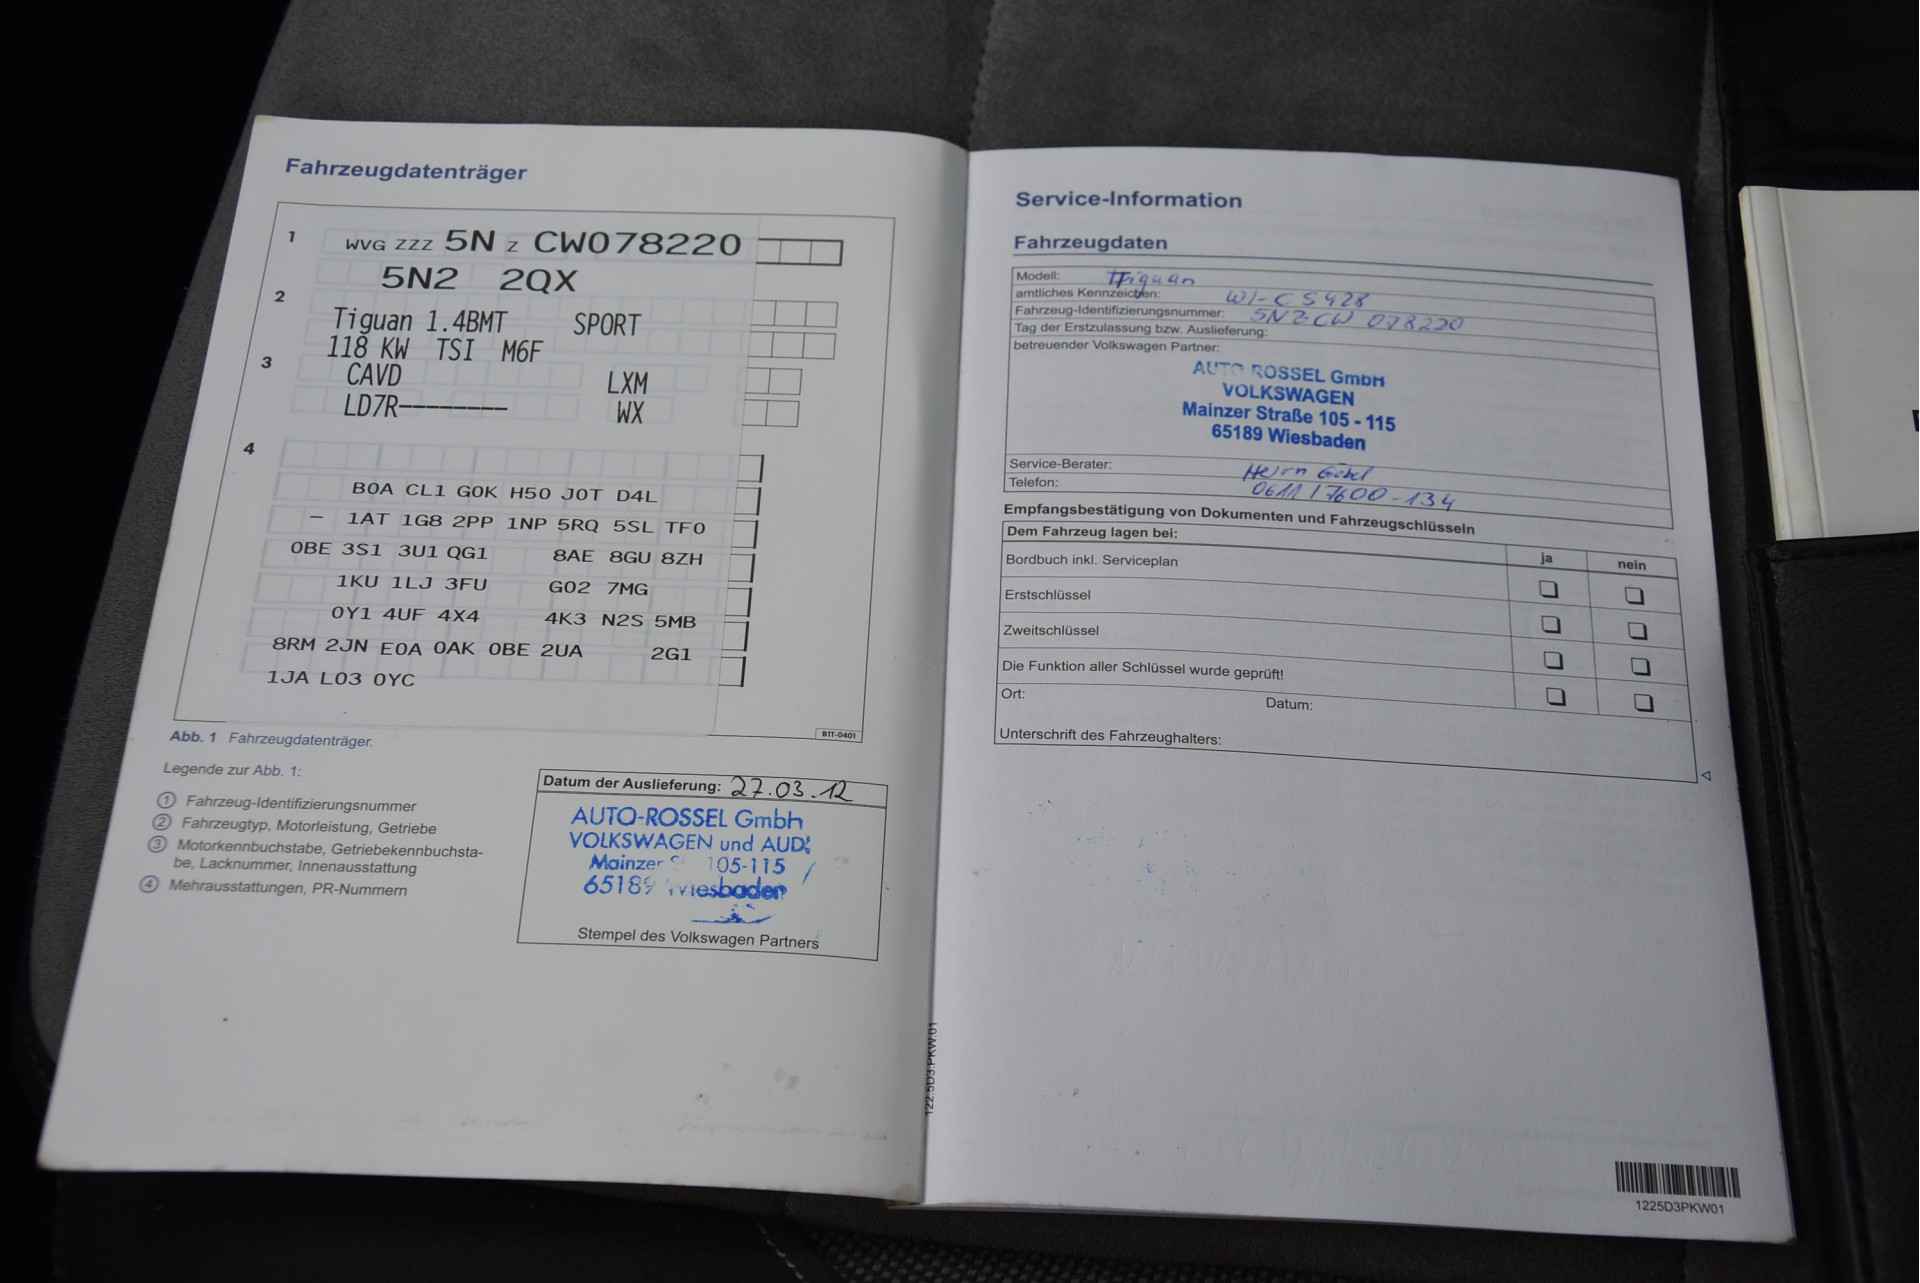 Fahrzeugdatenträger
1 WVG ZZZ 5N Z CW078220
5N2 2QX
2
Tiguan 1.4BMT SPORT
118 KW TSI M6F
3
CAVD LXM
LD7R-------- WX
4
B0A CL1 G0K H50 J0T D4L
- 1AT 1G8 2PP 1NP 5RQ 5SL TF0
0BE 3S1 3U1 QG1 8AE 8GU 8ZH
1KU 1LJ 3FU G02 7MG
0Y1 4UF 4X4 4K3 N2S 5MB
8RM 2JN E0A 0AK 0BE 2UA 2G1
1JA L03 0YC
B1T-0401
Abb. 1 Fahrzeugdatenträger.
Legende zur Abb. 1:
1 Fahrzeug-Identifizierungsnummer
2 Fahrzeugtyp, Motorleistung, Getriebe
3 Motorkennbuchstabe, Getriebekennbuchsta-
be, Lacknummer, Innenausstattung
4 Mehrausstattungen, PR-Nummern
Datum der Auslieferung: 27.03.12
AUTO-ROSSEL GmbH
VOLKSWAGEN und AUDI
Mainzer 105-115
65189 Wiesbaden
Stempel des Volkswagen Partners
122.5D3.PKW.01
Service-Information
Fahrzeugdaten
Modell: Tiguan
amtliches Kennzeichen: WI-CS428
Fahrzeug-Identifizierungsnummer: 5NZCW 078220
Tag der Erstzulassung bzw. Auslieferung:
betreuender Volkswagen Partner:
AUTO ROSSEL GmbH
VOLKSWAGEN
Mainzer Straße 105 - 115
65189 Wiesbaden
Service-Berater: Herrn
Telefon: 0611 / 7600 - 134
Empfangsbestätigung von Dokumenten und Fahrzeugschlüsseln
Dem Fahrzeug lagen bei: ja nein
Bordbuch inkl. Serviceplan
Erstschlüssel
Zweitschlüssel
Die Funktion aller Schlüssel wurde geprüft!
Ort: Datum:
Unterschrift des Fahrzeughalters:
1225D3PKW01